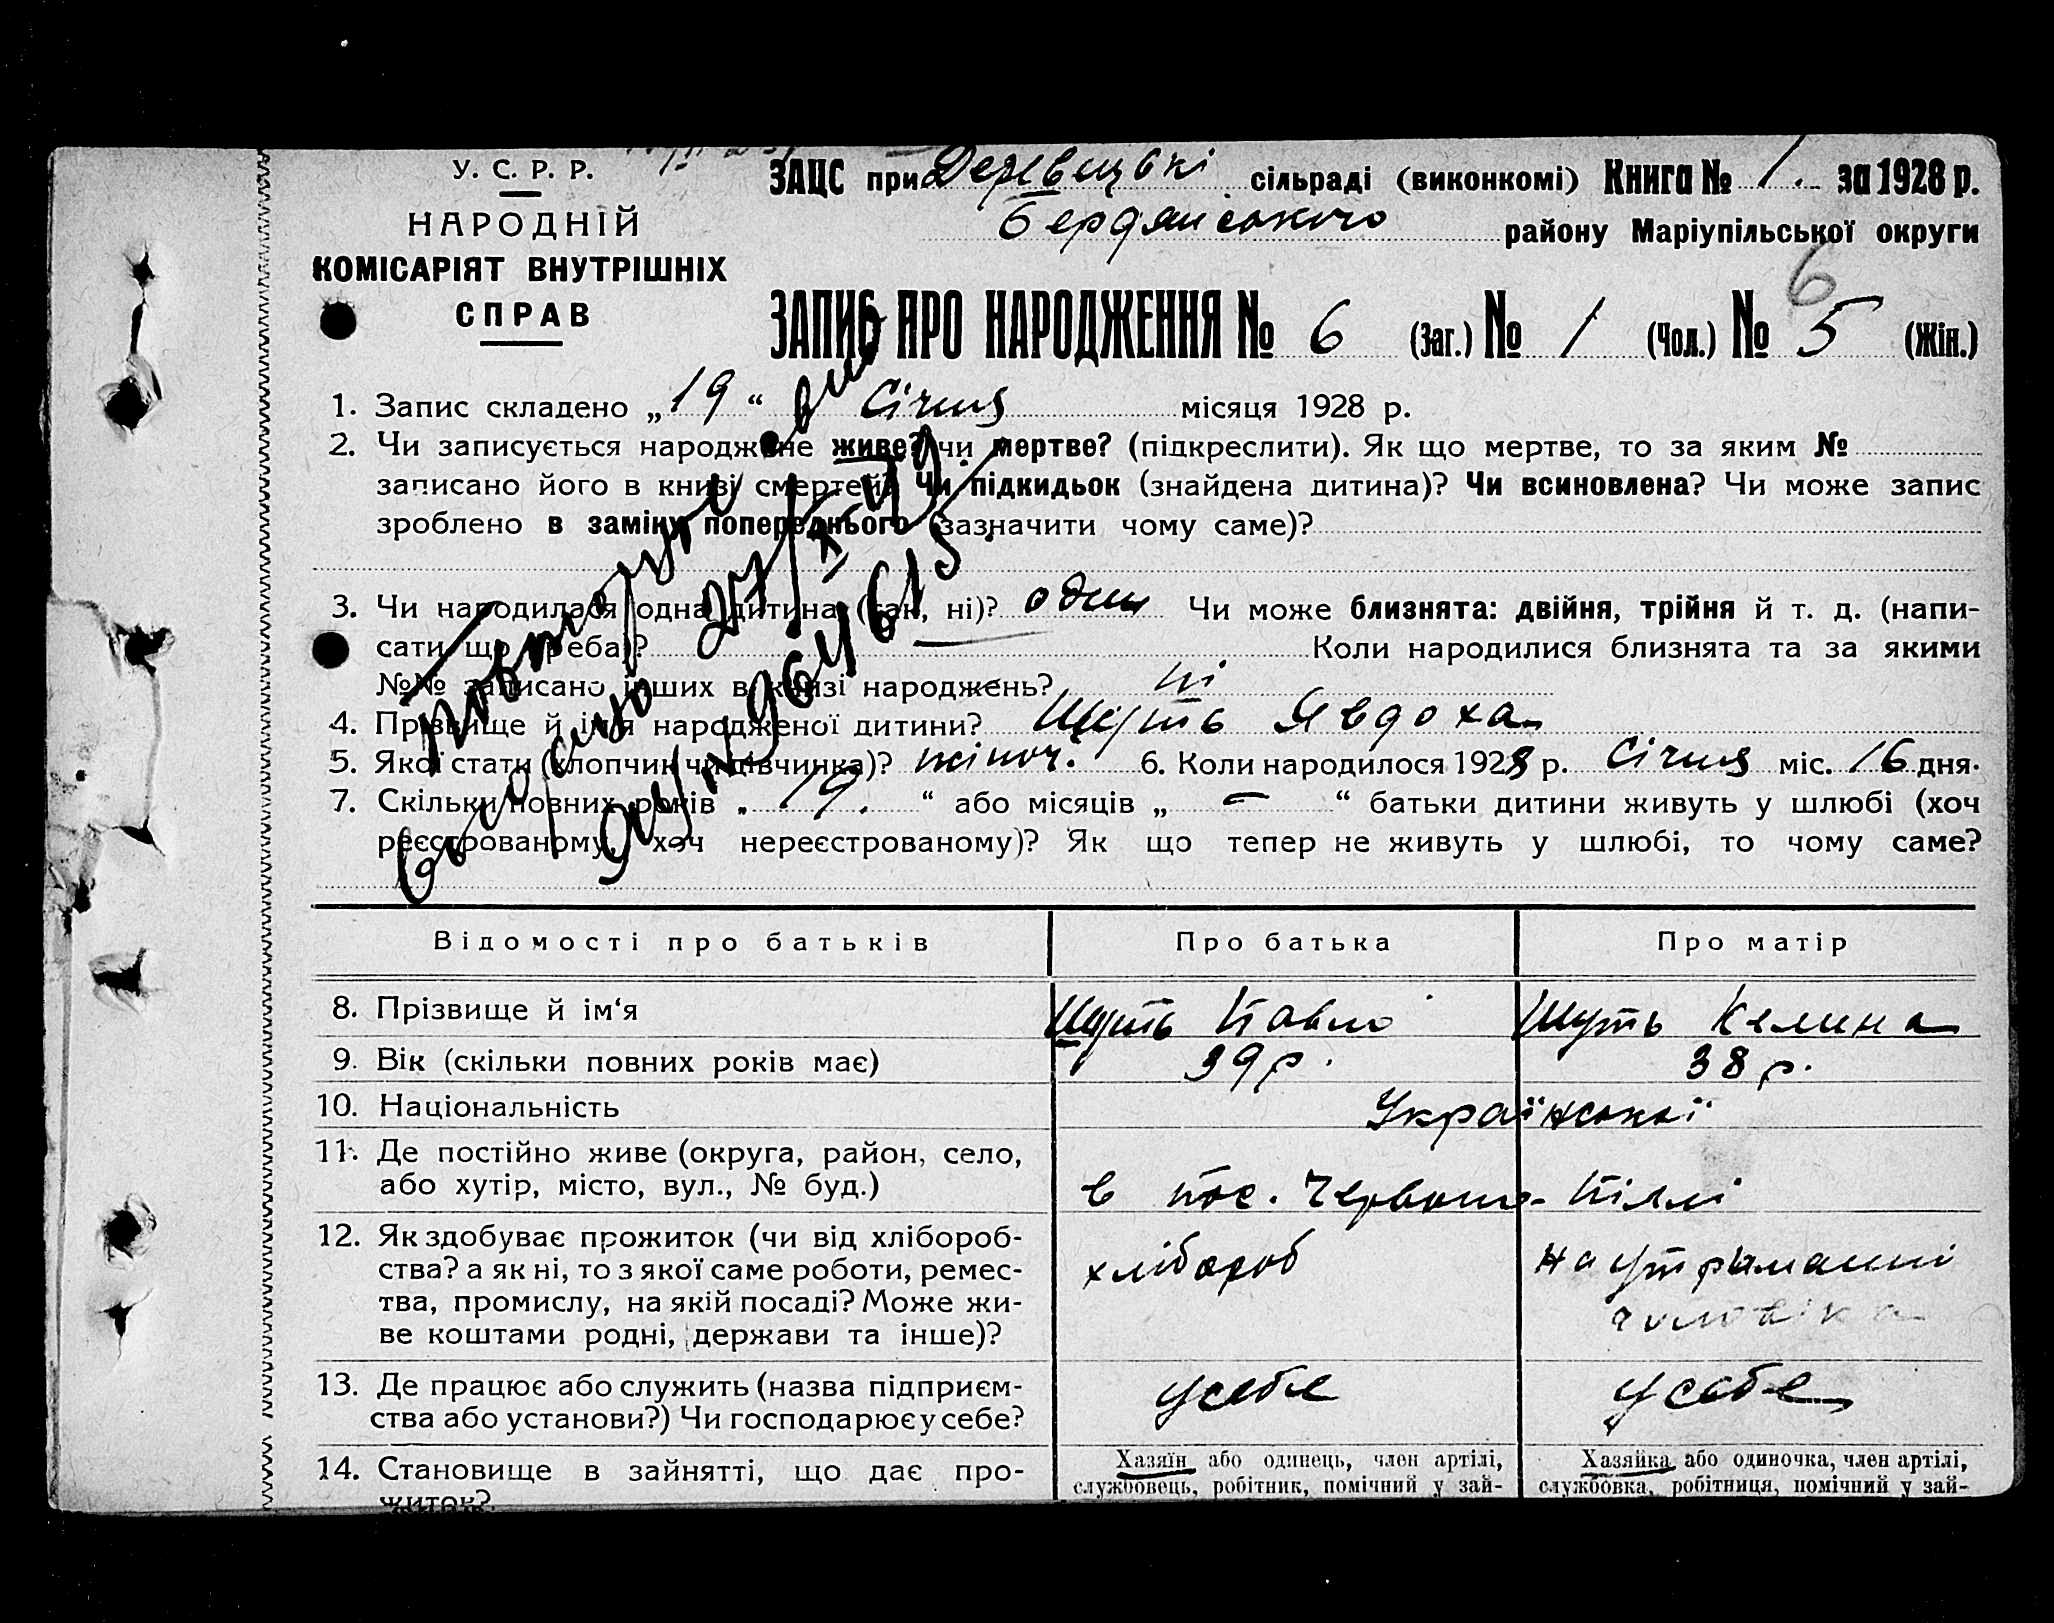 У. С. Р. Р.
НАРОДНІЙ
КОМІСАРІЯТ ВНУТРІШНІХ
СПРАВ
ЗАЦС при сільраді (виконкомі) Книга № 1. за 1928 р.
Бердянського району Маріупільської округи
6
ЗАПИС ПРО НАРОДЖЕННЯ № 6 (Заг.) № 1 (Чол.) № 5 (Жін.)
1. Запис складено „19“ Січня місяця 1928 р.
2. Чи записується народжене живе? чи мертве? (підкреслити). Як що мертве, то за яким №
записано його в книзі смертей? Чи підкидьок (знайдена дитина)? Чи всиновлена? Чи може запис
зроблено в заміну попереднього (зазначити чому саме)?
3. Чи народилася одна дитина (так, ні)? одна Чи може близнята: двійня, трійня й т. д. (напи-
сати що треба)? Коли народилися близнята та за якими
№№ записано інших в книзі народжень? ні
4. Прізвище й ім'я народженої дитини? Шуть Явдоха
5. Якої стати (хлопчик чи дівчинка)? жіноч. 6. Коли народилося 1928 р. Січня міс. 16 дня.
7. Скільки повних років „19.“ або місяців „—“ батьки дитини живуть у шлюбі (хоч
реєстрованому, хоч нереєстрованому)? Як що тепер не живуть у шлюбі, то чому саме?
Повторне
Відомості про батьків Про батька Про матір
8. Прізвище й ім'я Шуть Павло Шуть Келина
9. Вік (скільки повних років має) 39 р. 38 р.
10. Національність Української
11. Де постійно живе (округа, район, село,
або хутір, місто, вул., № буд.) в пос. Червоно-Піллі
12. Як здобуває прожиток (чи від хлібороб-
ства? а як ні, то з якої саме роботи, ремес-
тва, промислу, на якій посаді? Може жи-
ве коштами родні, держави та інше)? хлібороб на утриманні
чоловіка
13. Де працює або служить (назва підприєм-
ства або установи?) Чи господарює у себе? у себе у себе
14. Становище в зайнятті, що дає про-
житок?
Хазяїн або одинець, член артілі,
службовець, робітник, помічний у зай-
Хазяйка або одиночка, член артілі,
службовка, робітниця, помічний у зай-